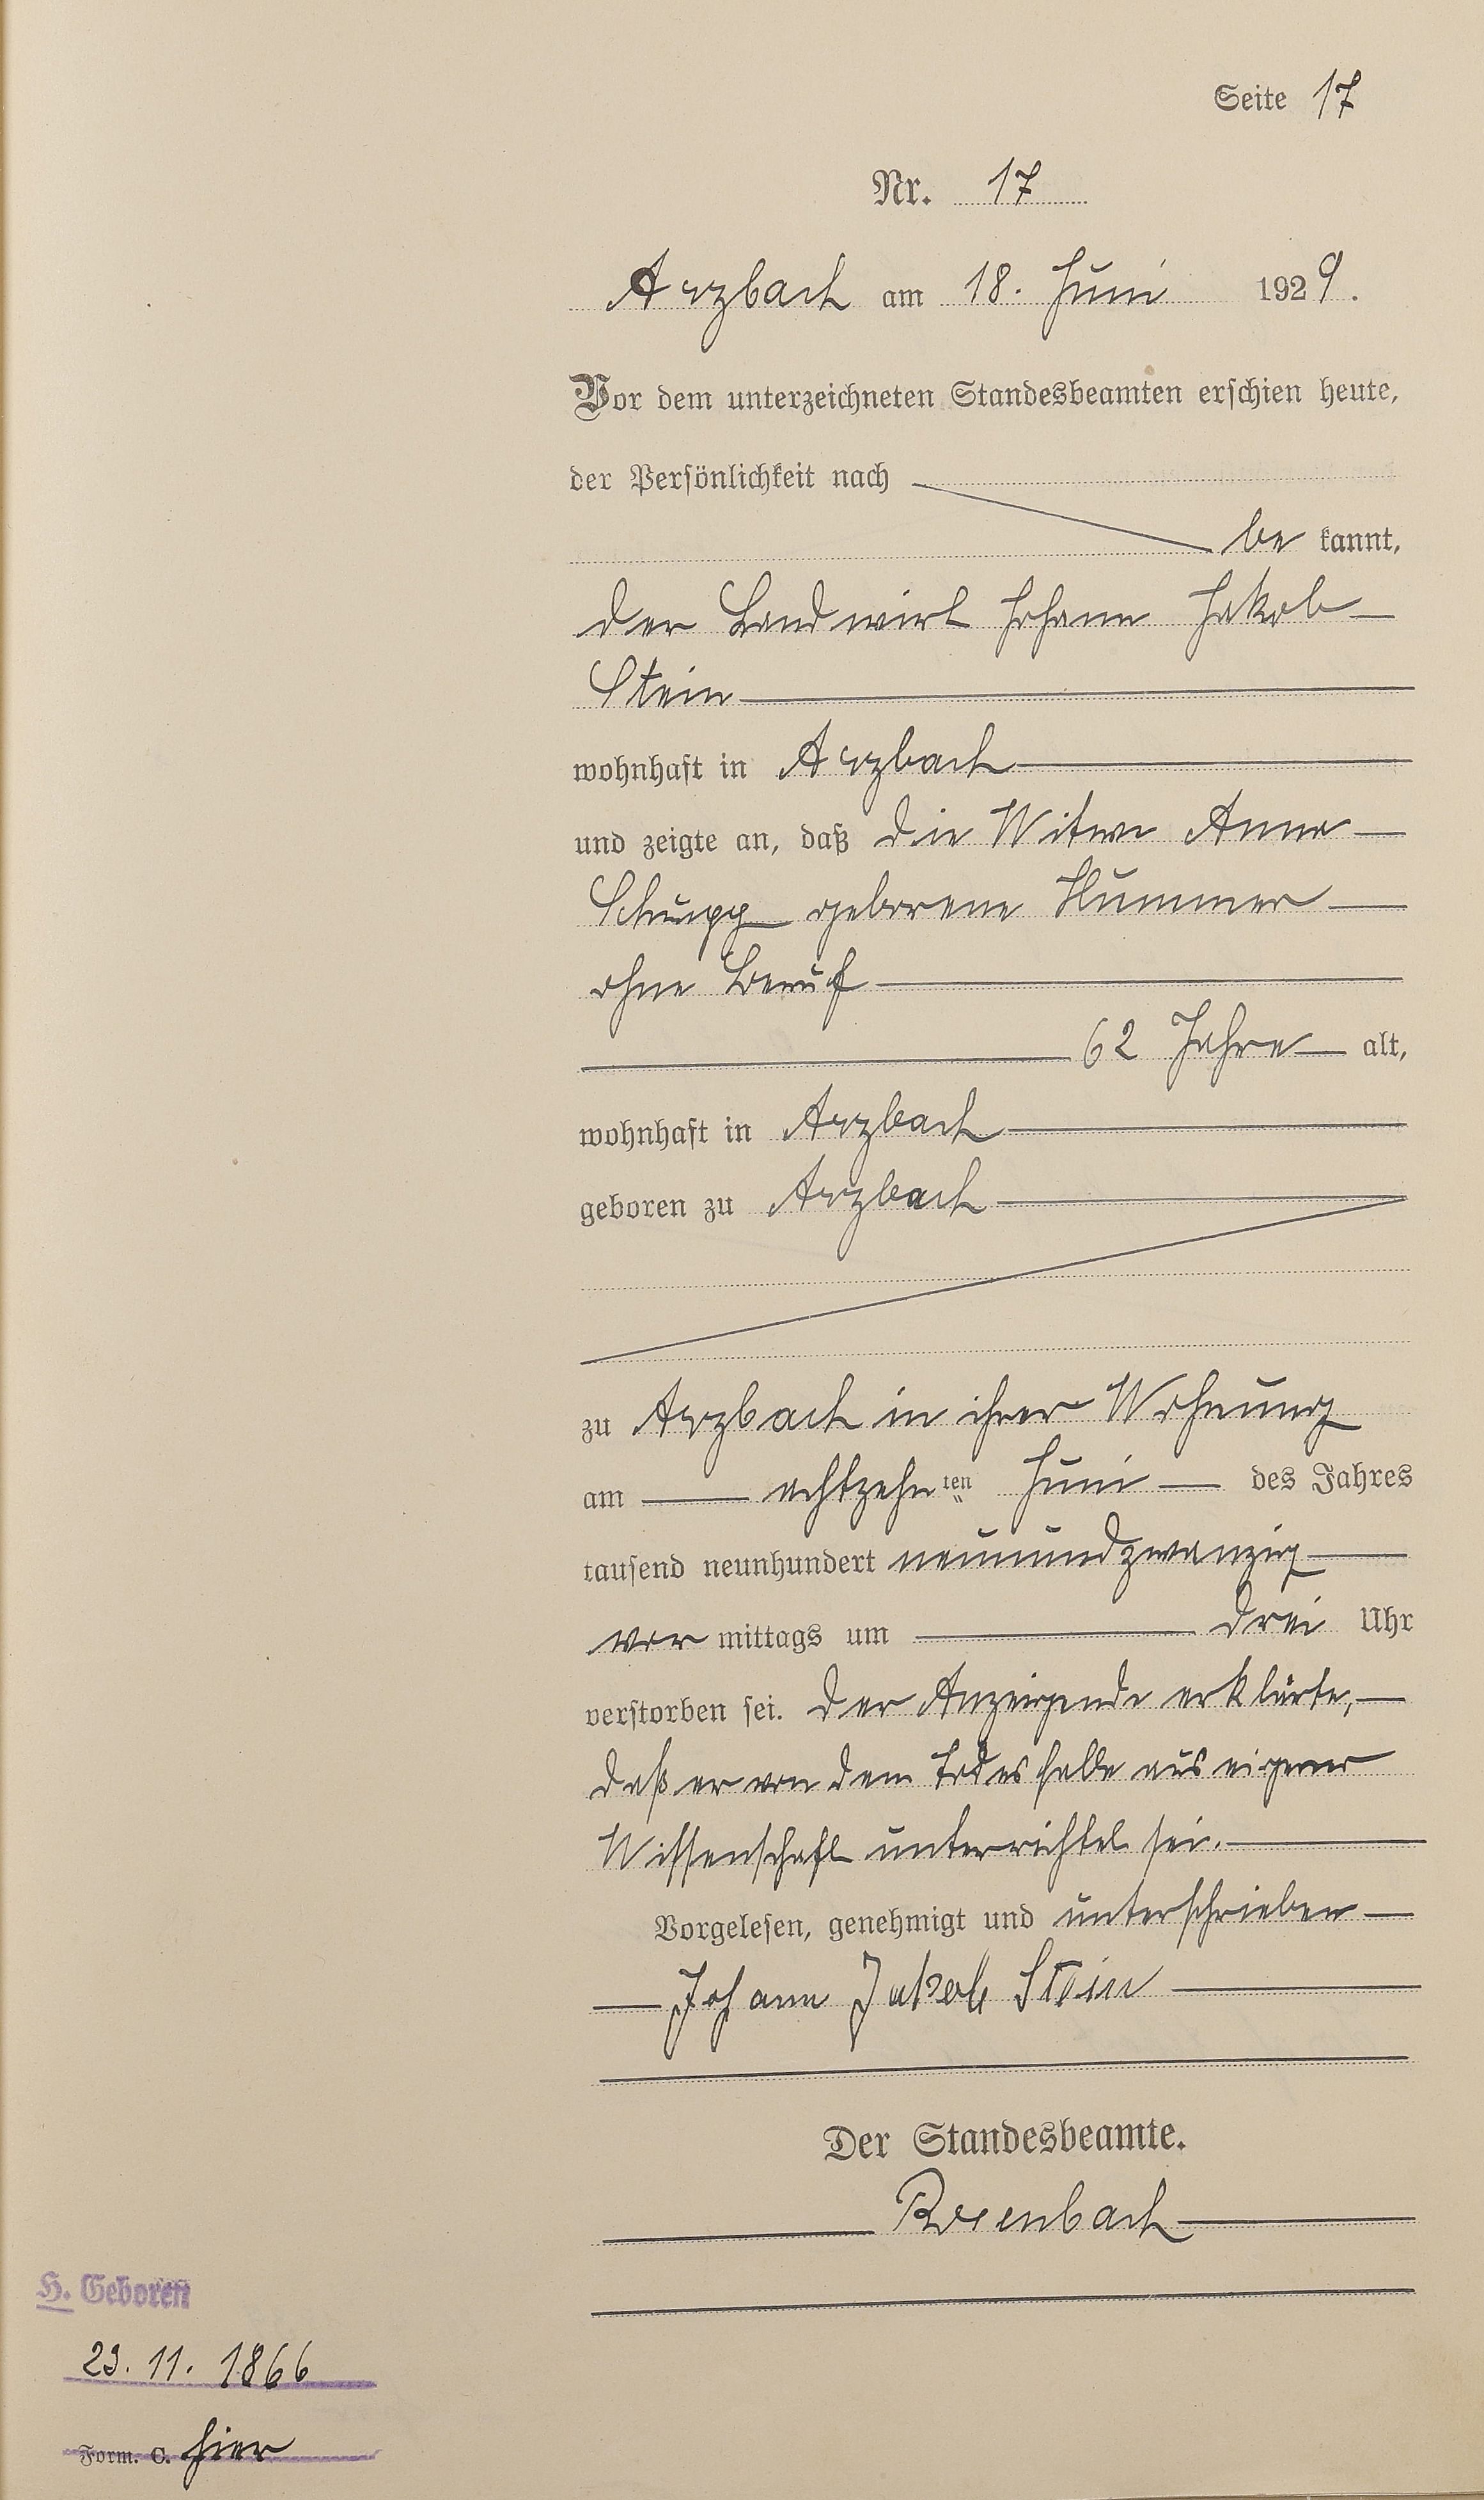 Seite 17
Nr. 17
Arzbach am 18. Juni 1929.
Vor dem unterzeichneten Standesbeamten erschien heute,
der Persönlichkeit nach
be kannt,
der Landwirt Johann Jakob
Stein
wohnhaft in Arzbach
und zeigte an, daß die Witwe Anna
Schupp geborene Hummer
ohne Beruf
62 Jahre alt,
wohnhaft in Arzbach
geboren zu Arzbach
zu Arzbach in ihrer Wohnung
am achtzehn ten Juni des Jahres
tausend neunhundert neunundzwanzig
vor mittags um drei Uhr
verstorben sei. Der Anzeigende erklärte,
daß er von dem Todesfalle aus eigener
Wissenschaft unterrichtet sei.
Vorgelesen, genehmigt und unterschrieben
Johann Jakob Stein
Der Standesbeamte.
H. Geboren
23. 11. 1866
Form. C. hier